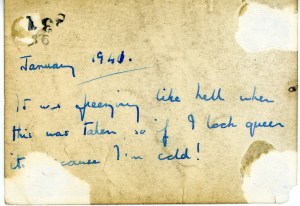 January 1941.
It was freezing like hell when
this was taken so if I look queer
its cause I'm cold!